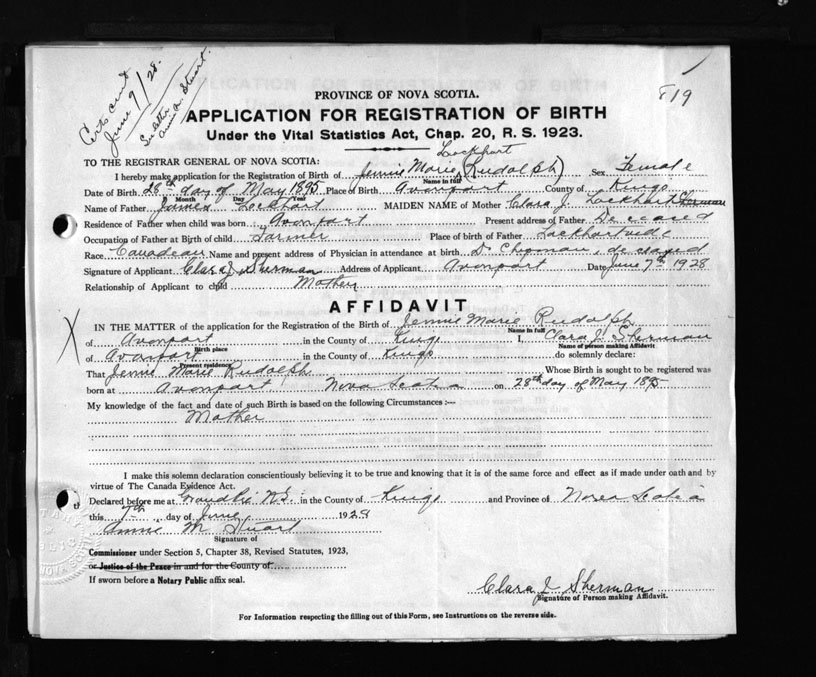 Certs sent
June 9/28.
819
PROVINCE OF NOVA SCOTIA.
APPLICATION FOR REGISTRATION OF BIRTH
Under the Vital Statistics Act, Chap. 20, R. S. 1923.
Lockhart
TO THE REGISTRAR GENERAL OF NOVA SCOTIA:
I hereby make application for the Registration of Birth of Jennie Marie (Rudolph) Sex Female
Name in full
Date of Birth 28th day of May 1895 Place of Birth Avonport County of Kings
Month Day Year
Name of Father James Lockhart MAIDEN NAME of Mother Clara J. Lockhart Sherman
Residence of Father when child was born Avonport Present address of Father Deceased
Occupation of Father at Birth of child Farmer Place of Birth of Father Lockhartville
Race Canadean Name and present address of Physician in attendance at birth Dr Chipman, deceased
Signature of Applicant Clara J Sherman Address of Applicant Avonport Date June 7th 1928
Relationship of Applicant to child Mother
AFFIDAVIT
IN THE MATTER of the application for the Registration of the Birth of Jennie Marie Rudolph
Name in full
of Avonport in the County of Kings I, Clara J Sherman
Birth place Name of person making Affidavit
of Avonport in the County of Kings do solemnly declare:
Present residence
That Jennie Marie Rudolph Whose Birth is sought to be registered was
born at Avonport Nova Scotia on 28th day of May 1895
My knowledge of the fact and date of such Birth is based on the following Circumstances :—
Mother
I make this solemn declaration conscientiously believing it to be true and knowing that it is of the same force and effect as if made under oath and by
virtue of The Canada Evidence Act.
Declared before me at Grand Pre N.S. in the County of Kings and Province of Nova Scotia
this 7th day of June 1928
Annie M Stuart
Signature of
Commissioner under Section 5, Chapter 38, Revised Statutes, 1923,
or Justice of the Peace in and for the County of
If sworn before a Notary Public affix seal.
Clara J Sherman
Signature of Person making Affidavit.
For Information respecting the filling out of this Form, see Instructions on the reverse side.